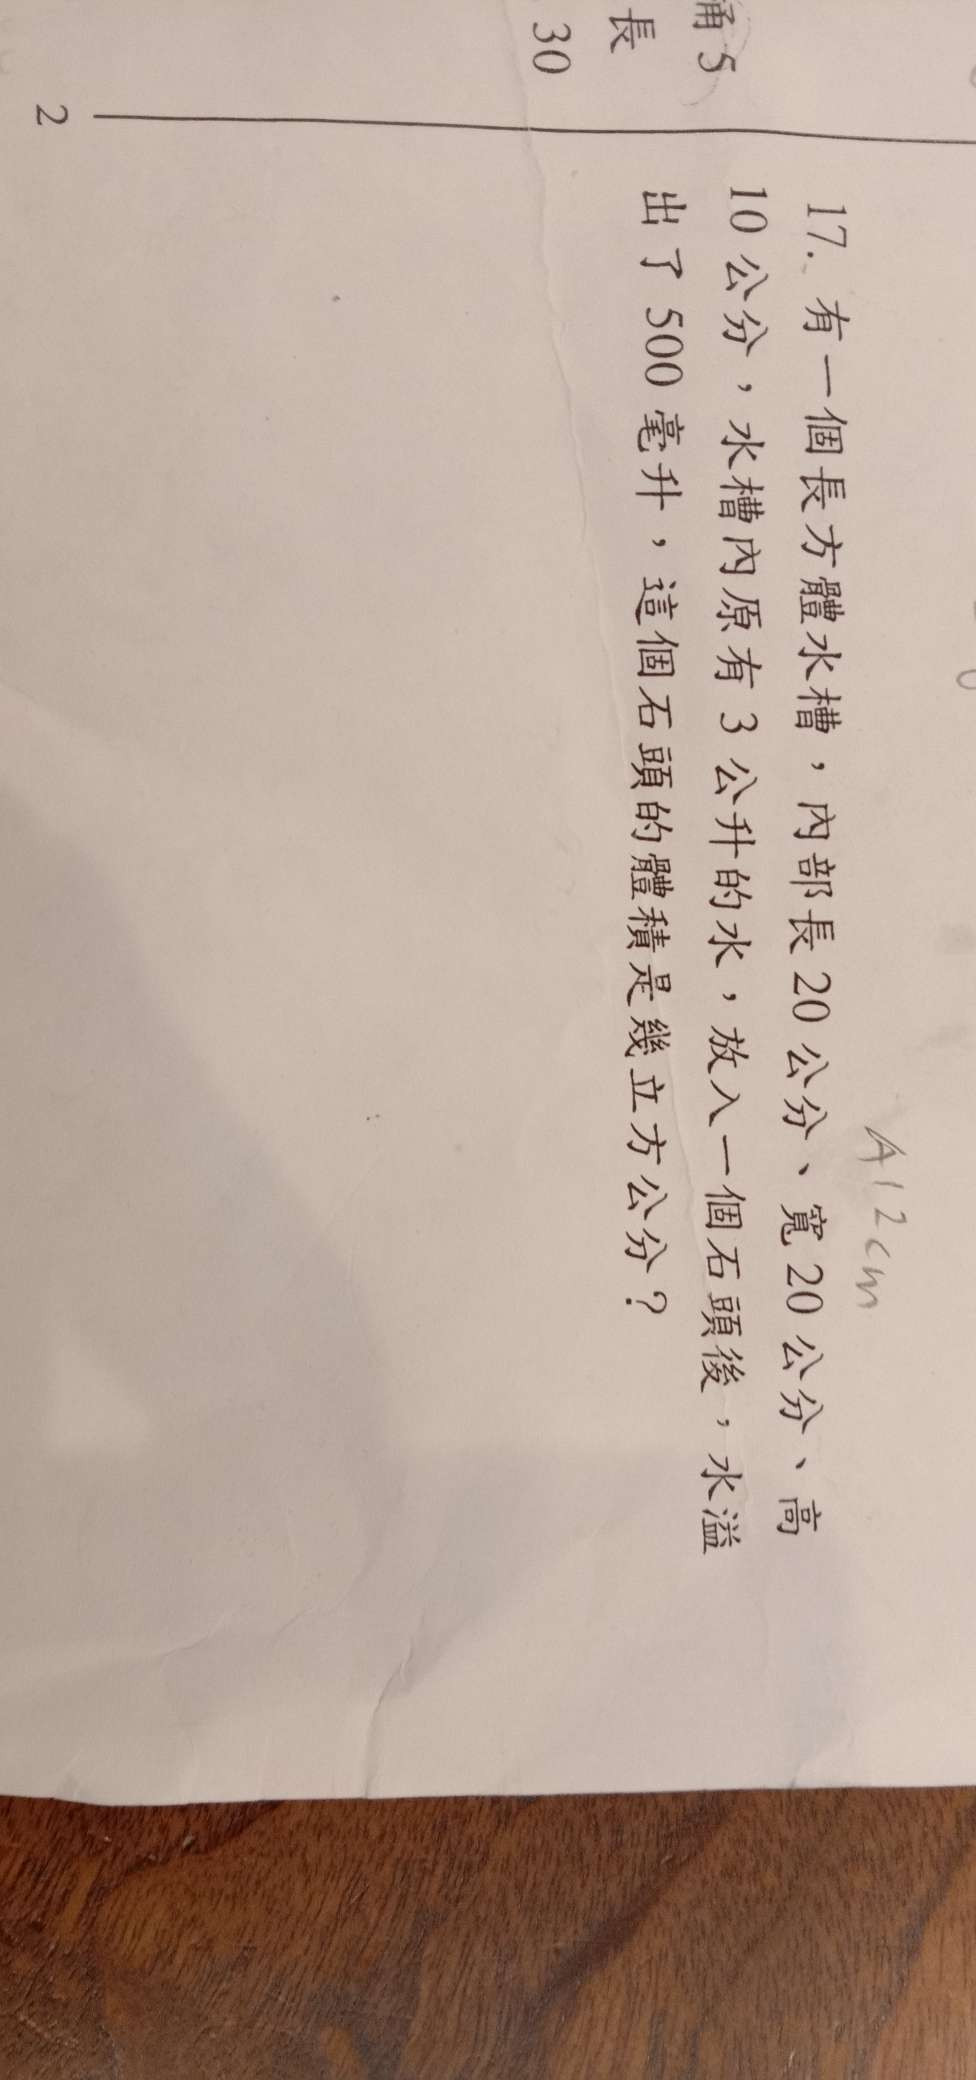 A12cm
17. 有一個長方體水槽，內部長20公分、寬20公分、高
10公分，水槽內原有3公升的水，放入一個石頭後，水溢
出了500毫升，這個石頭的體積是幾立方公分？
5
長
30
2